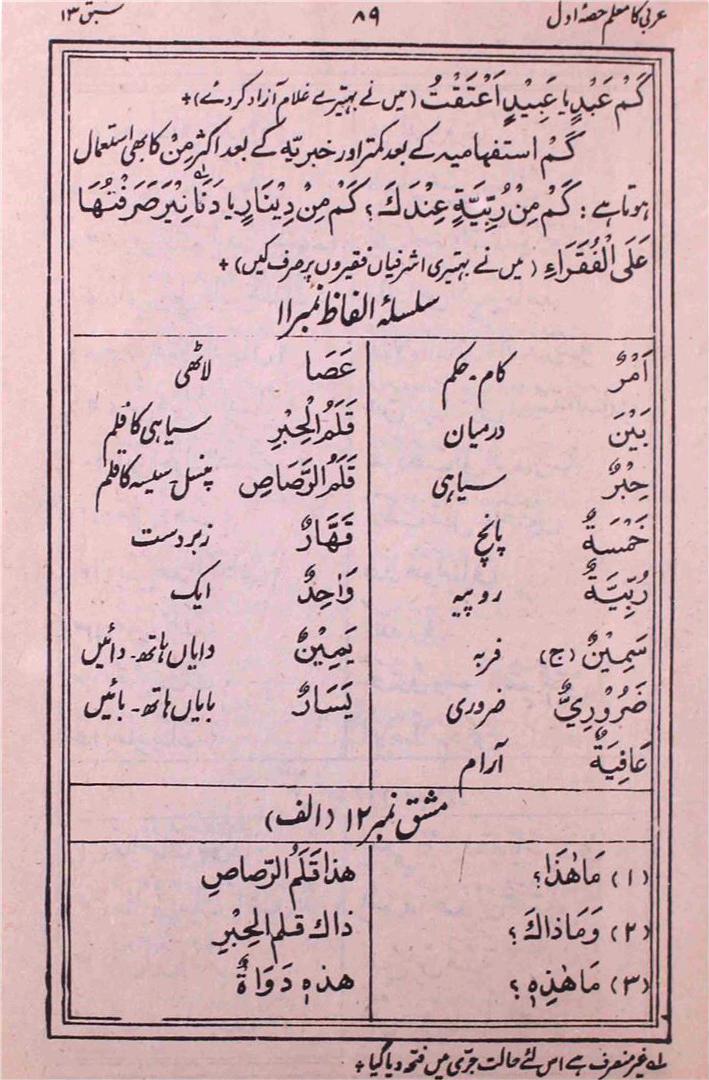 عربی کا معلم حصہ اول ۸۹ سبق ۱۳
كَمْ عَبْدٍ یا عَبِيْدٍ اَعْتَقْتُ (میں نے بہتیرے غلام آزاد کردئے)+
كَمْ استفہامیہ کے بعد کمتر اور خبریّہ کے بعد اکثر مِنْ کا بھی استعمال
ہوتا ہے: كَمْ مِنْ رُبِّيَّةٍ عِنْدَكَ؟ كَمْ مِنْ دِيْنَارٍ یا دَنَانِيْرَ صَرَفْتُهَا
عَلَى الْفُقَرَاءِ (میں نے بہتیری اشرفیاں فقیروں پر صرف کیں)+
سلسلۂ الفاظ نمبر ۱۱
اَمْرٌ کام۔ حکم عَصَا لاٹھی
بَيْنَ درمیان قَلَمُ الْحِبْرِ سیاہی کا قلم
حِبْرٌ سیاہی قَلَمُ الرَّصَاصِ پنسل۔ سیسہ کا قلم
خَمْسَةٌ پانچ قَهَّارٌ زبردست
رُبِّيَّةٌ روپیہ وَاحِدٌ ایک
سَمِيْنٌ (ج) فربہ يَمِيْنٌ دایاں ہاتھ۔ دائیں
ضَرُوْرِيٌّ ضروری يَسَارٌ بایاں ہاتھ۔ بائیں
عَافِيَةٌ آرام
مشق نمبر ۱۲ (الف)
(۱) مَا هٰذَا؟ هذا قَلَمُ الرَّصاصِ
(۲) وَمَا ذاكَ؟ ذاك قلم الحِبْرِ
(۳) مَا هٰذِهٖ؟ هذه دَوَاةٌ
لہ غیر منصرف ہے اس لئے حالت جرّی میں فتحہ دیا گیا+